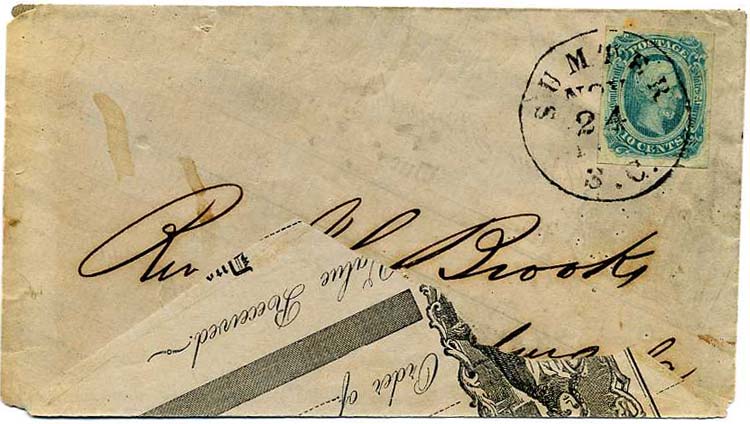 SUMTER
NOV
24
S.C.
POSTAGE
10 CENTS
Rev W Brooks
Due
Value Received.
Order of